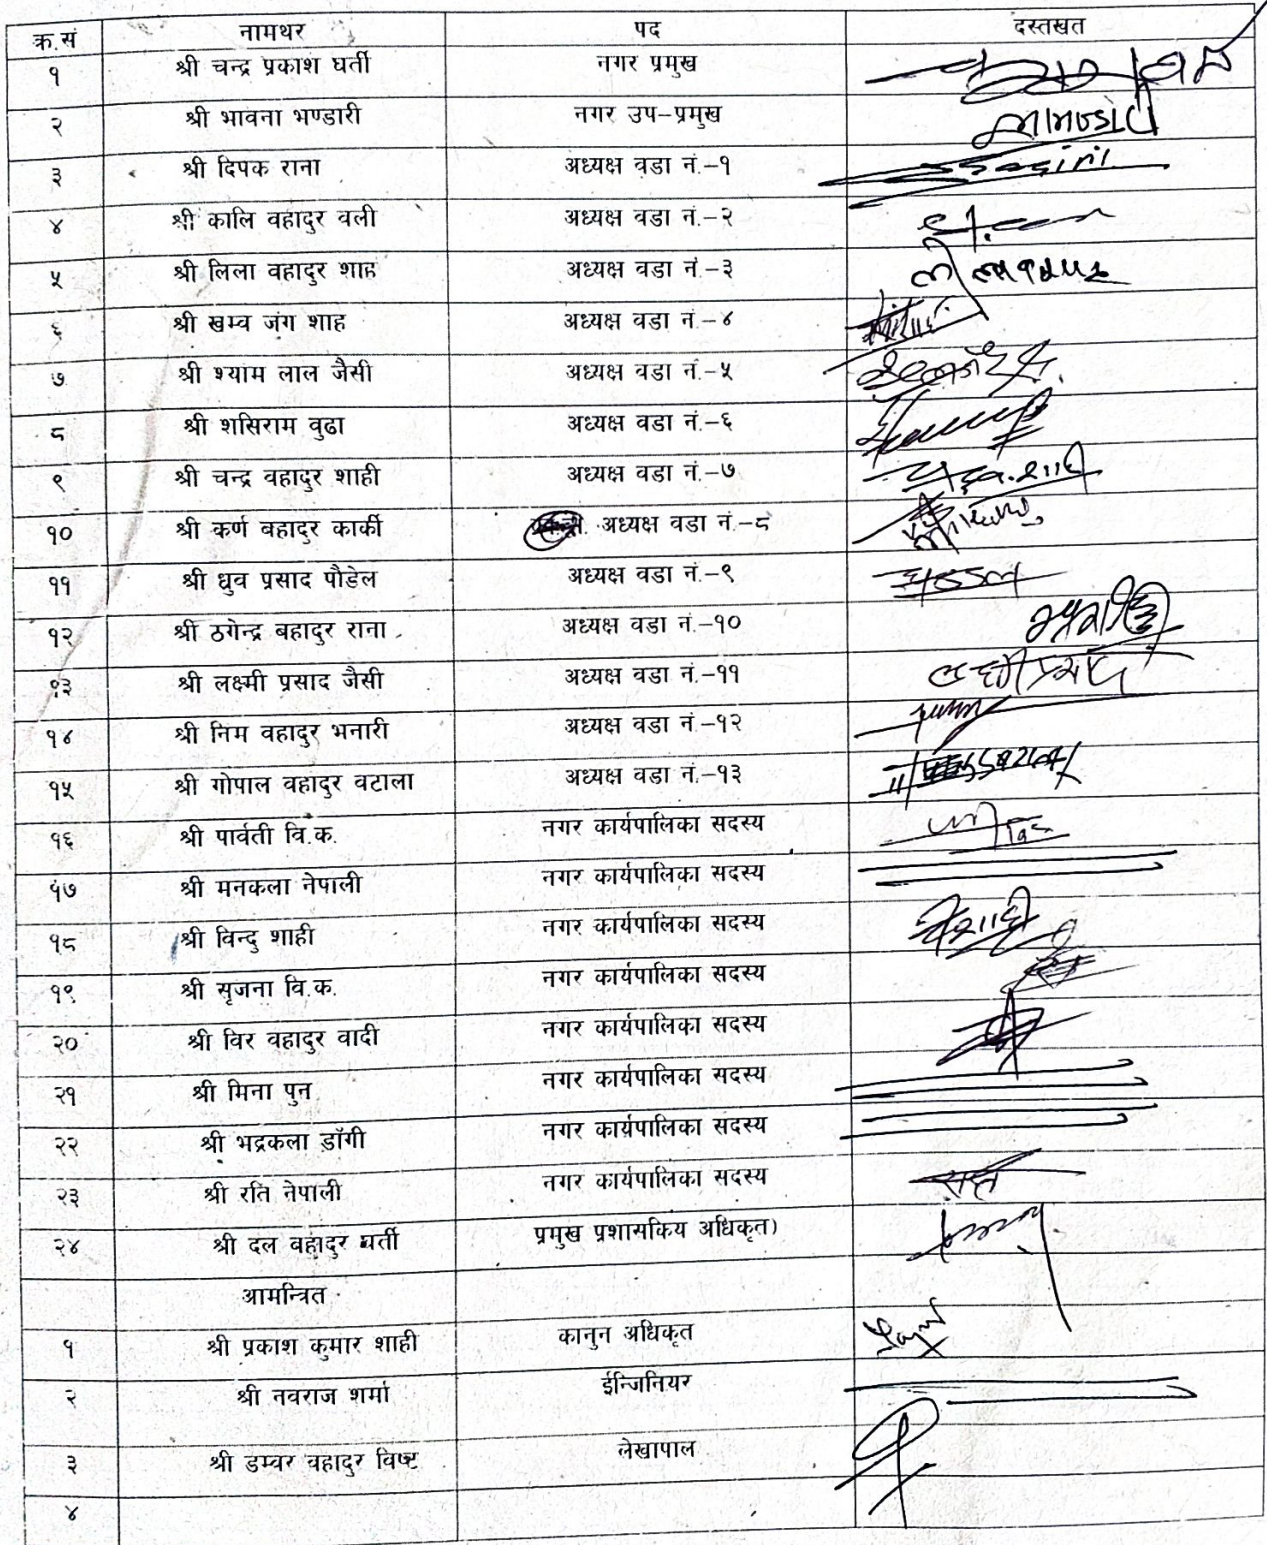 क्र.सं नामथर पद दस्तखत
१ श्री चन्द्र प्रकाश घर्ती नगर प्रमुख
२ श्री भावना भण्डारी नगर उप-प्रमुख
३ श्री दिपक राना अध्यक्ष वडा नं.-१
४ श्री कालि वहादुर वली अध्यक्ष वडा नं.-२
५ श्री लिला वहादुर शाह अध्यक्ष वडा नं.-३
६ श्री खम्व जंग शाह अध्यक्ष वडा नं.-४
७ श्री श्याम लाल जैसी अध्यक्ष वडा नं.-५
८ श्री शसिराम वुढा अध्यक्ष वडा नं.-६
९ श्री चन्द्र वहादुर शाही अध्यक्ष वडा नं.-७
१० श्री कर्ण वहादुर कार्की अध्यक्ष वडा नं.-८
११ श्री ध्रुव प्रसाद पौडेल अध्यक्ष वडा नं.-९
१२ श्री ठगेन्द्र बहादुर राना अध्यक्ष वडा नं.-१०
१३ श्री लक्ष्मी प्रसाद जैसी अध्यक्ष वडा नं.-११ लक्ष्मी प्रसाद
१४ श्री निम वहादुर भनारी अध्यक्ष वडा नं.-१२
१५ श्री गोपाल वहादुर वटाला अध्यक्ष वडा नं.-१३
१६ श्री पार्वती वि.क. नगर कार्यपालिका सदस्य
१७ श्री मनकला नेपाली नगर कार्यपालिका सदस्य
१८ श्री विन्दु शाही नगर कार्यपालिका सदस्य
१९ श्री सृजना वि.क. नगर कार्यपालिका सदस्य
२० श्री विर वहादुर वादी नगर कार्यपालिका सदस्य
२१ श्री मिना पुन नगर कार्यपालिका सदस्य
२२ श्री भद्रकला डाँगी नगर कार्यपालिका सदस्य
२३ श्री रति नेपाली नगर कार्यपालिका सदस्य
२४ श्री दल बहादुर घर्ती प्रमुख प्रशासकिय अधिकृत)
आमन्त्रित
१ श्री प्रकाश कुमार शाही कानुन अधिकृत
२ श्री नवराज शर्मा ईन्जिनियर
३ श्री डम्वर वहादुर विष्ट लेखापाल
४